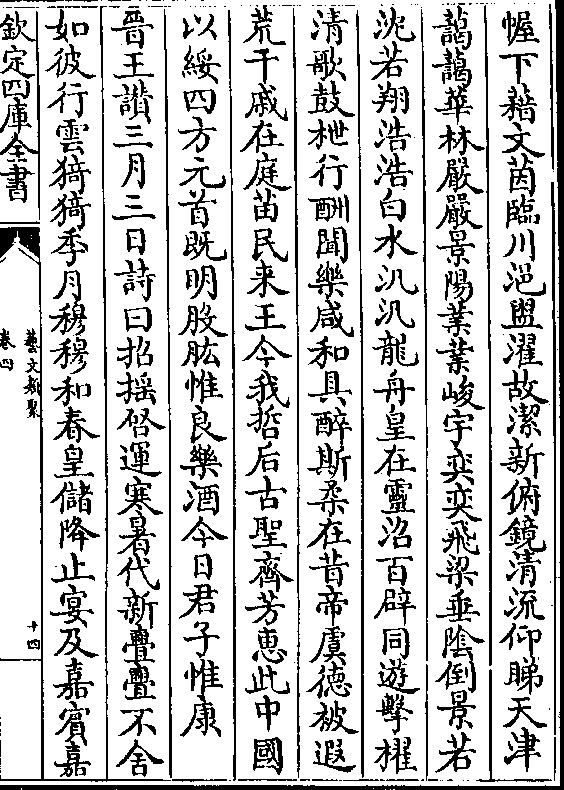 幄下藉文茵臨川浥盥濯故潔新俯鏡清流仰睇天津
藹藹華林嚴嚴景陽業業峻宇奕奕飛梁垂陰倒景若
沈若翔浩浩白水汎汎龍舟皇在靈沼百辟同遊擊櫂
清歌鼓枻行酬聞樂咸和具醉斯柔在昔帝虞德被遐
荒干戚在庭苗民来王今我哲后古聖齊芳惠此中國
以綏四方元首既明股肱惟良樂酒今日君子惟康
晉王讃三月三日詩曰招揺啓運寒暑代新亹亹不舍
如彼行雲猗猗季月穆穆和春皇儲降止宴及嘉賓嘉
欽定四庫全書
藝文類聚
卷四
十四